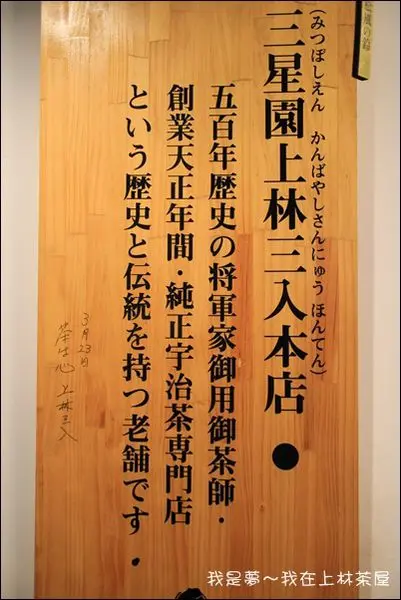 三星園上林三入本店●
(みつぼしえん かんばやしさんにゅう ほんてん)
五百年歴史の将軍家御用御茶師・
創業天正年間・純正宇治茶専門店
という歴史と伝統を持つ老舗です・
3月23日
上林三入
我是夢～我在上林茶屋